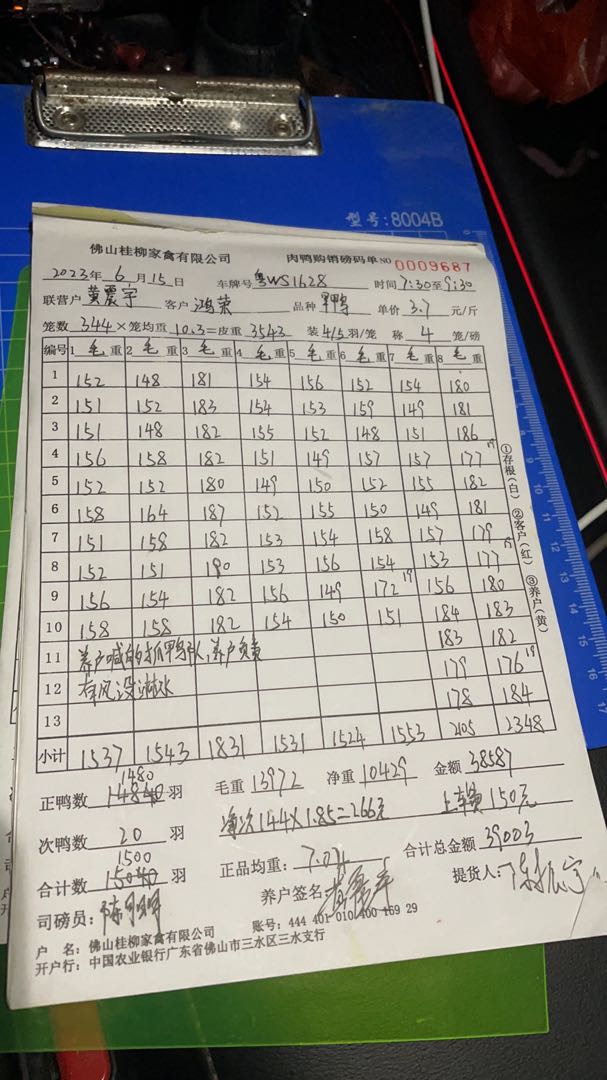 型号:8004B
佛山桂柳家禽有限公司 肉鸭购销磅码单 NO 0009687
2023年 6 月 15 日 车牌号 粤WS1628 时间 7:30至9:30
联营户 黄震宇 客户 鸿荣 品种 甲鸭 单价 3.7 元/斤
笼数 344 ×笼均重 10.3 =皮重 3543 装 4/5 羽/笼 称 4 笼/磅
编号 1 毛 重 2 毛 重 3 毛 重 4 毛 重 5 毛 重 6 毛 重 7 毛 重 8 毛 重
1 152 148 181 154 156 152 154 180
2 151 152 183 154 153 159 149 181
3 151 148 182 155 152 148 151 186
4 156 158 182 151 149 157 157 177 19
5 152 152 180 149 150 152 155 182
6 158 164 187 152 155 150 149 181
7 151 158 182 153 154 158 157 179
8 152 151 190 153 156 154 153 177 19
9 156 154 182 156 149 172 19 156 180
10 158 158 182 154 150 151 184 183
11 养户喊的抓鸭队,养户负责 183 182
12 有风没淋水 179 176 19
13 178 184
小计 1537 1543 1831 1531 1524 1553 2105 2348
正鸭数 1480 羽 毛重 13972 净重 10429 金额 38587
次鸭数 20 羽 144×1.85=266元 上车费 150元
合计数 1500 羽 正品均重: 合计总金额 39003
司磅员: 养户签名 提货人:
户 名: 佛山桂柳家禽有限公司 账号: 444 401 010 400 169 29
开户行: 中国农业银行广东省佛山市三水区三水支行
①存根(白) ②客户(红) ③养户(黄)